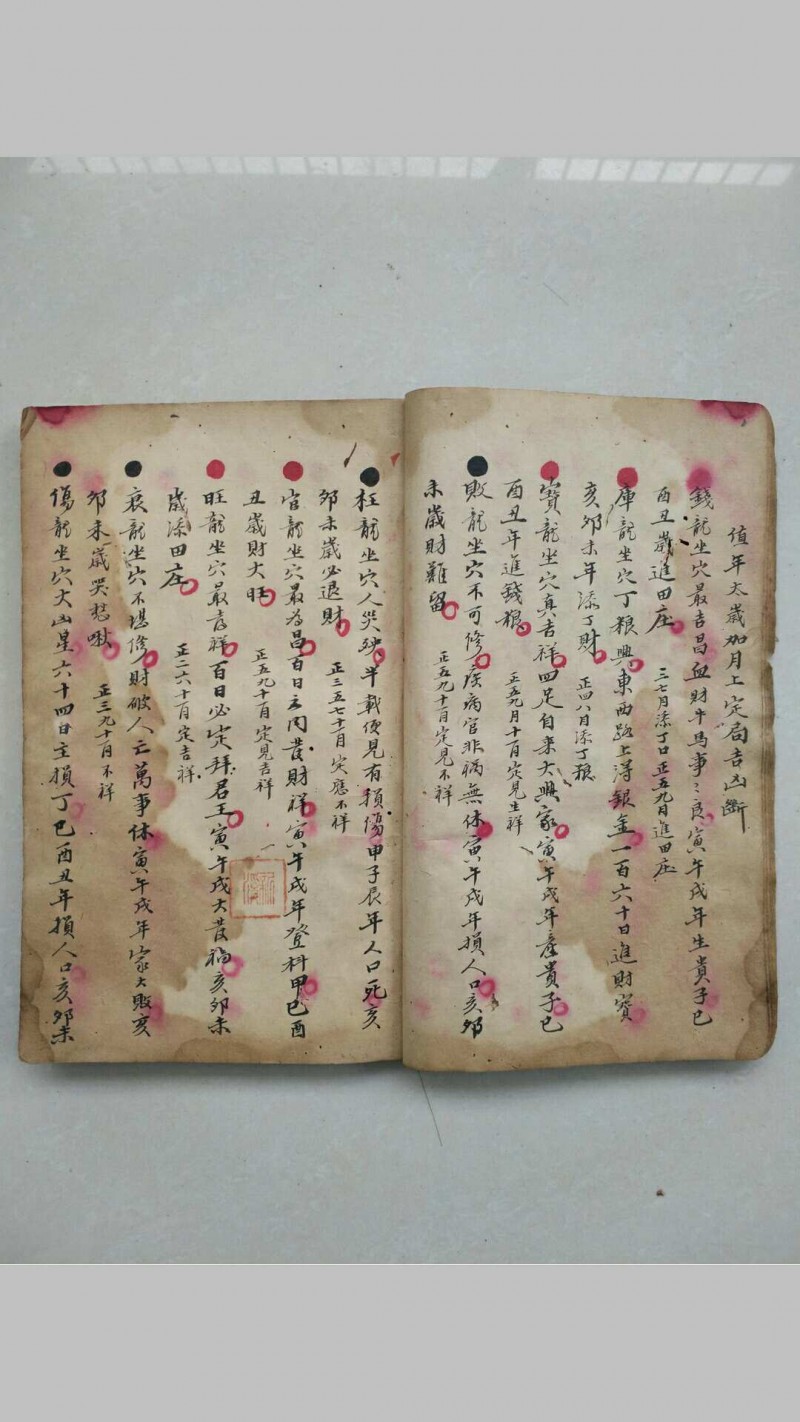 值年太歲加月上定局吉凶斷
錢龍坐穴最吉昌血財牛馬事〻良寅午戌年生貴子巳
酉丑歲進田庄 三七月添丁口正五九月進田庄
庫龍坐穴丁粮興東西路上淂銀金一百六十日進財寶
亥卯未年添丁財 正四八月添丁粮
寶龍坐穴真吉祥四足自来大興家寅午戌年產貴子巳
酉丑年進錢粮 正五九月十一月定見生祥
敗龍坐穴不可修疾病官非禍無休寅午戌年損人口亥卯
未歲財難留 正五九十一月定見不祥
枉龍坐穴人哭殃半載便見有損傷甲子辰年人口死亥
卯未歲必退財 正三五七十一月定應不祥
官龍坐穴最為昌百日之内發財祥寅午戌年登科甲巳酉
丑歲財大旺 正五九十一月定見吉祥
旺龍坐穴最吉祥百日必定拜君王寅午戌大發福亥卯未
歲添田庄 正二六十一月定吉祥
哀龍坐穴不堪修財破人亡萬事休寅午戌年家大敗亥
卯未歲哭愁啾 正三九十一月不祥
傷龍坐穴大凶星六十四日主損丁巳酉丑年損人口亥卯未